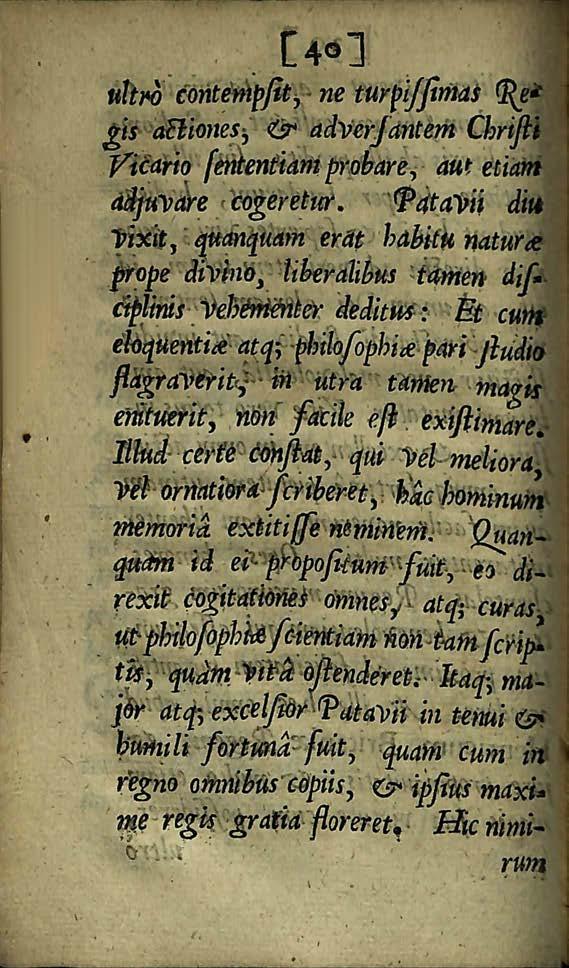 [40]
ultrò contempſit, ne turpiſſimas Re-
gis actiones, & adverſantem Chriſti
Vicario ſententiam probare, aut etiam
adjuvare cogeretur. Patavii diu
vixit, quanquam erat habitu naturæ
prope divino, liberalibus tamen diſ-
ciplinis vehementer deditus: Et cum
eloquentiæ atq; philoſophiæ pari ſtudio
flagraverit, in utra tamen magis
enituerit, non facile eſt exiſtimare.
Illud certe conſtat, qui vel meliora,
vel ornatiora ſcriberet, hâc hominum
memoriâ extitiſſe neminem. Quan-
quam id ei propoſitum fuit, eo di-
rexit cogitationes omnes, atq; curas,
ut philoſophiæ ſcientiam non tam ſcrip-
tis, quàm vitâ oſtenderet. Itaq; ma-
jor atq; excelſior Patavii in tenui &
humili fortunâ fuit, quam cum in
regno omnibus copiis, & ipſius maxi-
me regis gratia floreret. Hic nimi-
rum